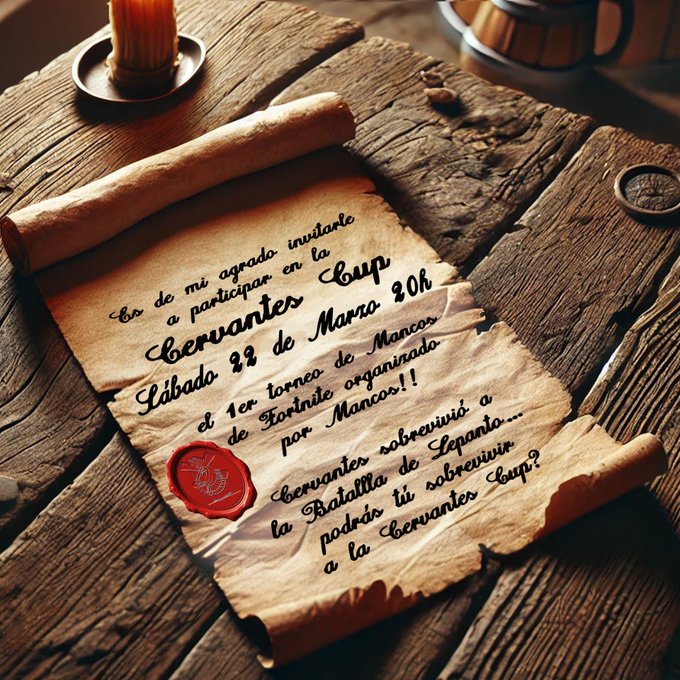 Es de mi agrado invitarle
a participar en la
Cervantes Cup
Sábado 22 de Marzo 20h
el 1er torneo de Mancos
de Fortnite organizado
por Mancos!!
Cervantes sobrevivió a
la Batallla de Lepanto...
podrás tú sobrevivir
a la Cervantes Cup?